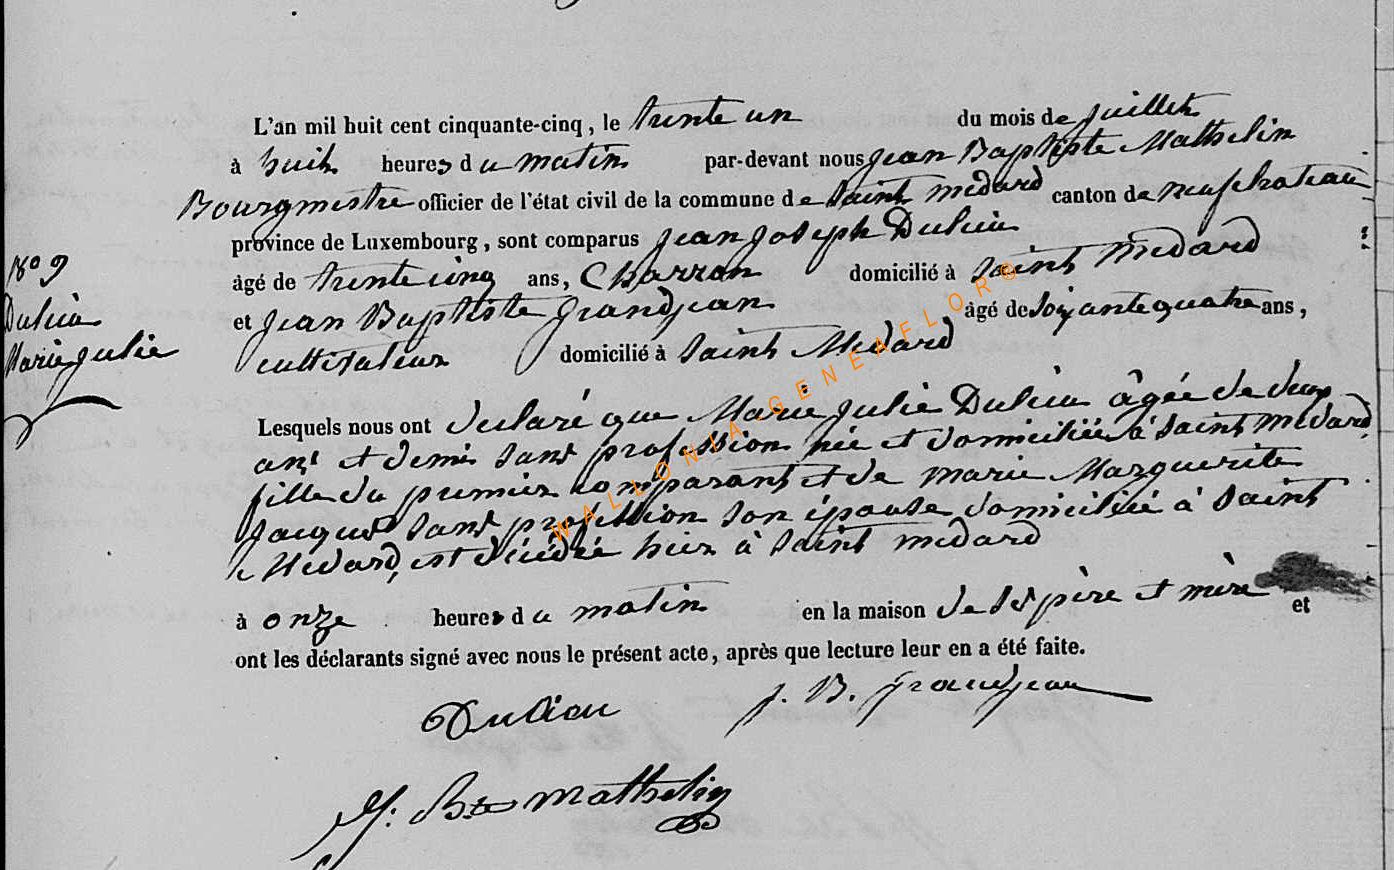 L'an mil huit cent cinquante-cinq, le trente un du mois de juillet
à huit heures du matin par-devant nous jean Baptiste Mathelin
Bourgmestre officier de l'état civil de la commune de Saint médard canton de neufchateau
province de Luxembourg, sont comparus jean joseph Dulieu
N° 9
âgé de trente cinq ans, Charron domicilié à Saint Médard
Dulieu
et jean Baptiste grandjean âgé de soixante quatre ans,
Marie julie
cultivateur domicilié à Saint Médard
Lesquels nous ont déclaré que Marie julie Dulieu âgée de deux
ans et demi sans profession née et domiciliée à Saint médard,
fille du premier comparant et de marie Marguerite
jacques sans profession son épouse domiciliée à Saint
Médard, est décédée hier à Saint médard
à onze heures du matin en la maison de ses père et mère et
ont les déclarants signé avec nous le présent acte, après que lecture leur en a été faite.
Dulieu j. B. grandjean
J. Bte Mathelin
WALLONIA-GENEAFLORO